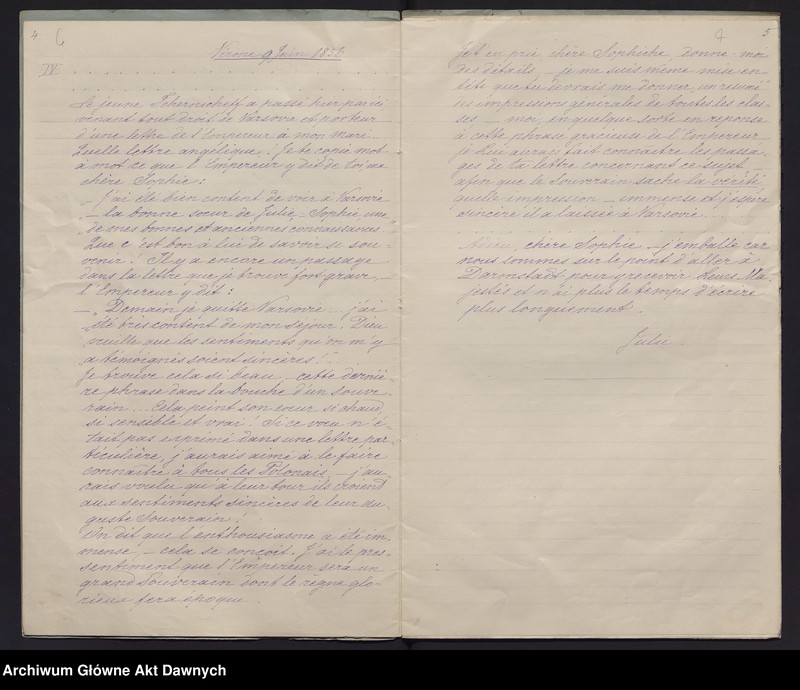 4
6
Vérone 9 Juin 1856.
IV.
Le jeune Tchernicheff a passé hier par ici
venant tout droit de Varsovie et porteur
d'une lettre de l'Empereur à mon mari.
Quelle lettre angélique! Je te copie mot
à mot ce que l'Empereur y dit de toi, ma
chère Sophie:
"J'ai été bien content de voir à Varsovie
— la bonne sœur de Julie — Sophie, une
de mes bonnes et anciennes connaissances."
Que c'est bon à lui de savoir se sou-
venir! Il y a encore un passage
dans la lettre que je trouve fort grave, —
l'Empereur y dit:
— "Demain je quitte Varsovie... j'ai
été très content de mon séjour. Dieu
veuille que les sentiments qu'on m'y
a témoignés soient sincères!"
Je trouve cela si beau, cette derniè-
re phrase dans la bouche d'un souve-
rain... Cela peint son cœur si chaud,
si sensible et vrai! Si ce vœu n'é-
tait pas exprimé dans une lettre par-
ticulière, j'aurais aimé à le faire
connaître à tous les Polonais, — j'au-
rais voulu qu'à leur tour ils croient
aux sentiments sincères de leur au-
guste Souverain!
On dit que l'enthousiasme a été im-
mense, — cela se conçoit. J'ai le pres-
sentiment que l'Empereur sera un
grand Souverain dont le règne glo-
rieux fera époque.
5
Je t'en prie chère Sophie donne-moi
des détails, je me suis même mise en
tête que tu devrais me donner un resumé
des impressions générales de toutes les clas-
ses — moi, en quelque sorte en reponse
à cette phrase gracieuse de l'Empereur
je lui aurai fait connaître les passa-
ges de ta lettre concernant ce sujet
afin que le Souverain sache la vérité,
quelle impression — immense et j'espère
sincère il a laissée à Varsovie.
Adieu, chère Sophie — j'emballe car
nous sommes sur le point d'aller à
Darmstadt pour y recevoir Leurs Ma-
jestés et n'ai plus le temps d'écrire
plus longuement.
Julie
Archiwum Główne Akt Dawnych